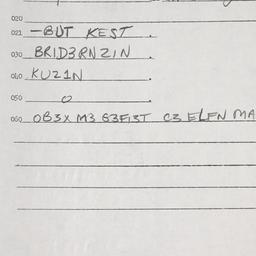 020
021 -BUT KEST .
030 BRID3RNZIN .
040 KUZ1N .
050 O .
060 OB3X M3 G3FI3T C3 ELFN MA